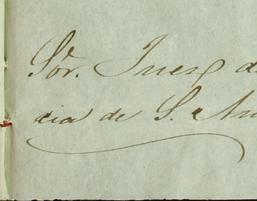 Sor. Juez d
cia de S. An